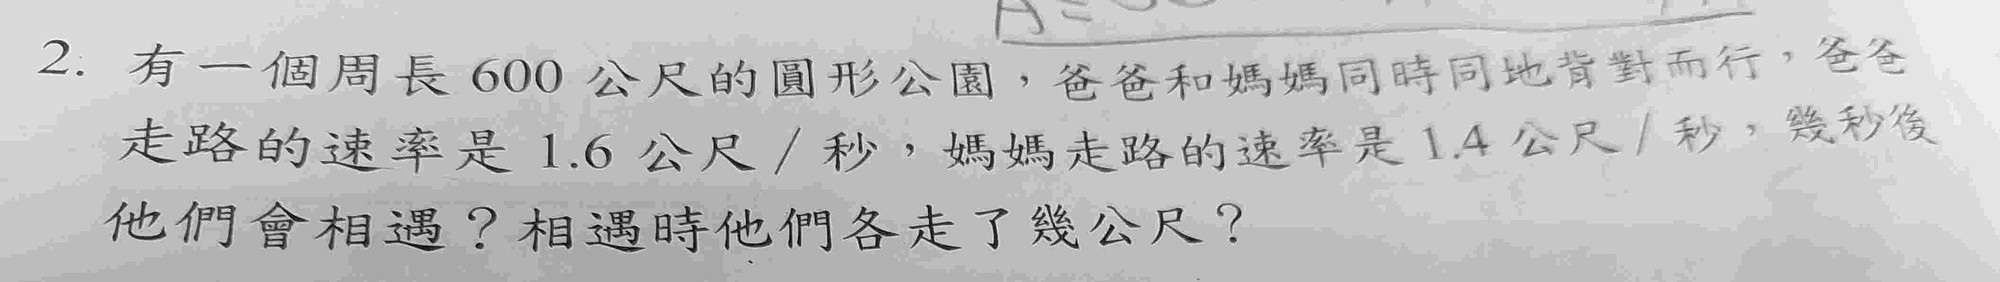 2. 有一個周長 600 公尺的圓形公園，爸爸和媽媽同時同地背對而行，爸爸
走路的速率是 1.6 公尺 / 秒，媽媽走路的速率是 1.4 公尺 / 秒，幾秒後
他們會相遇？相遇時他們各走了幾公尺？